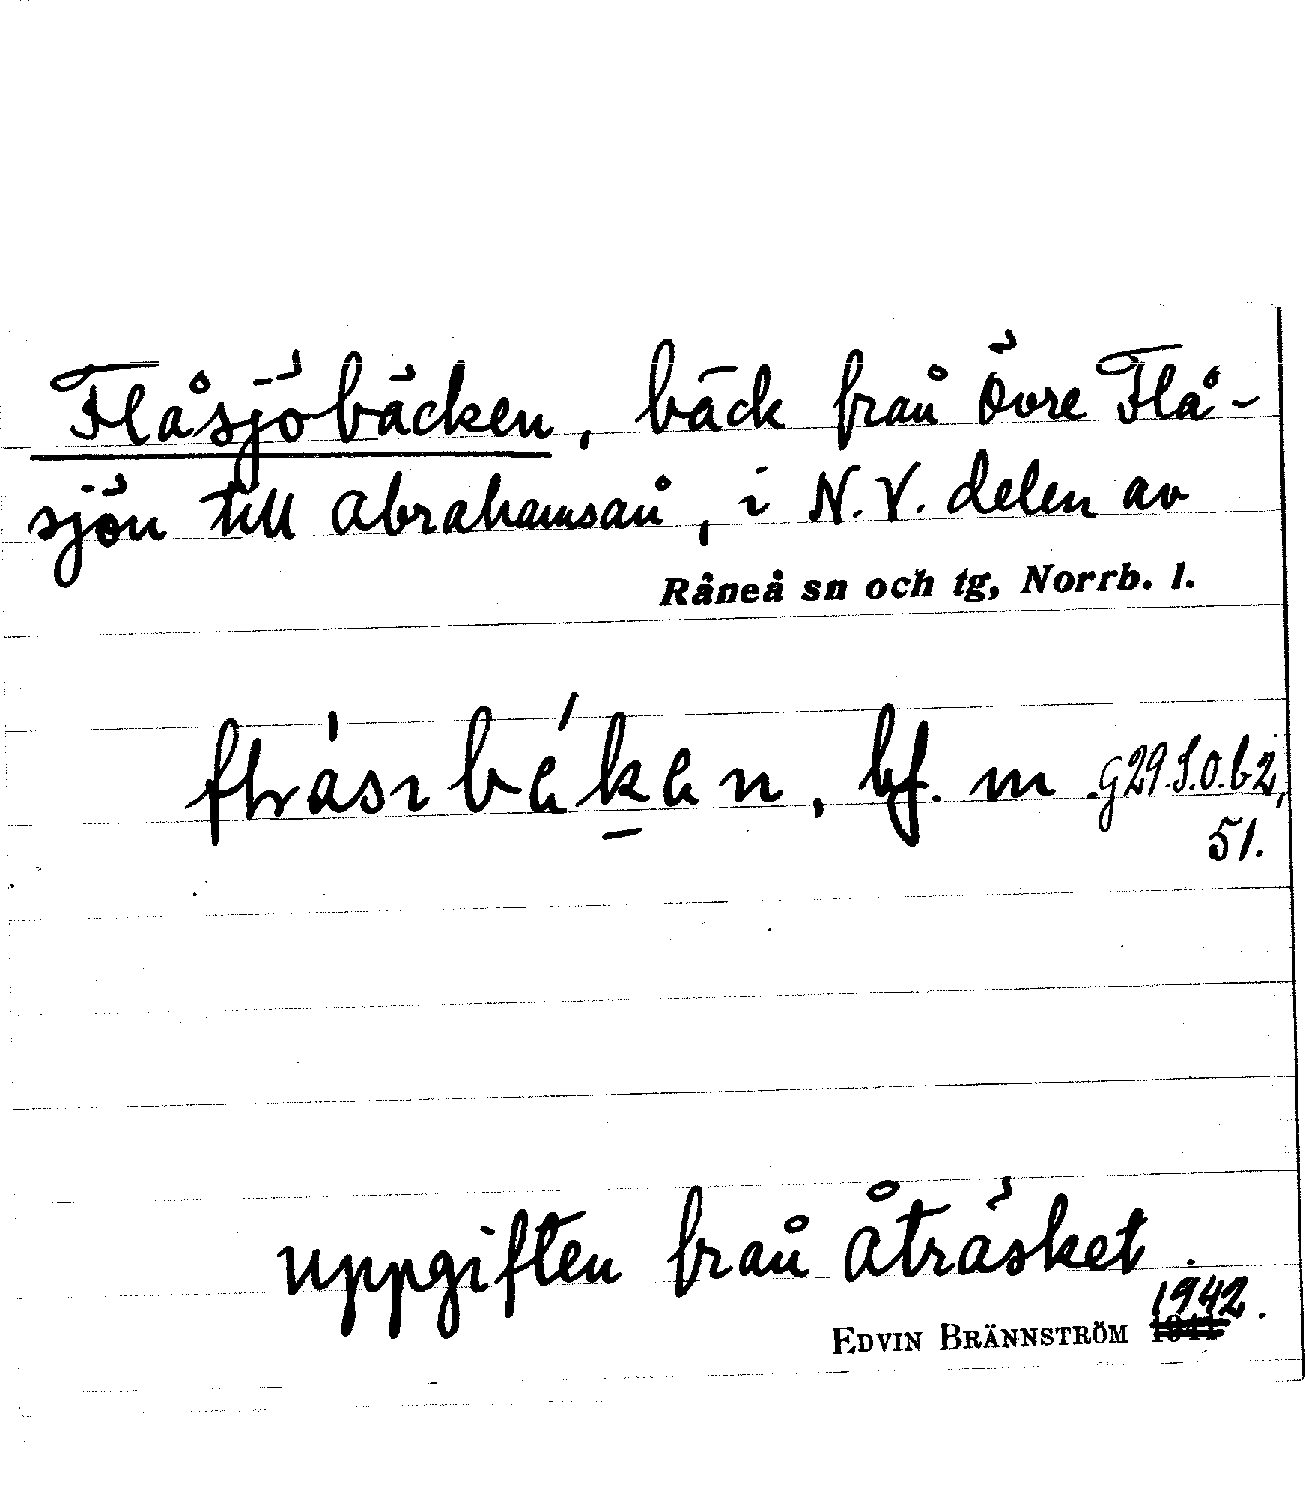 Flåsjöbäcken, bäck från Övre Flå-
sjön till Abrahamsån, i N.V. delen av
Råneå sn och tg, Norrb. l.
bf. m. g29.S.O.b2,
51.
Uppgiften från Åträsket.
EDVIN BRÄNNSTRÖM 1942.